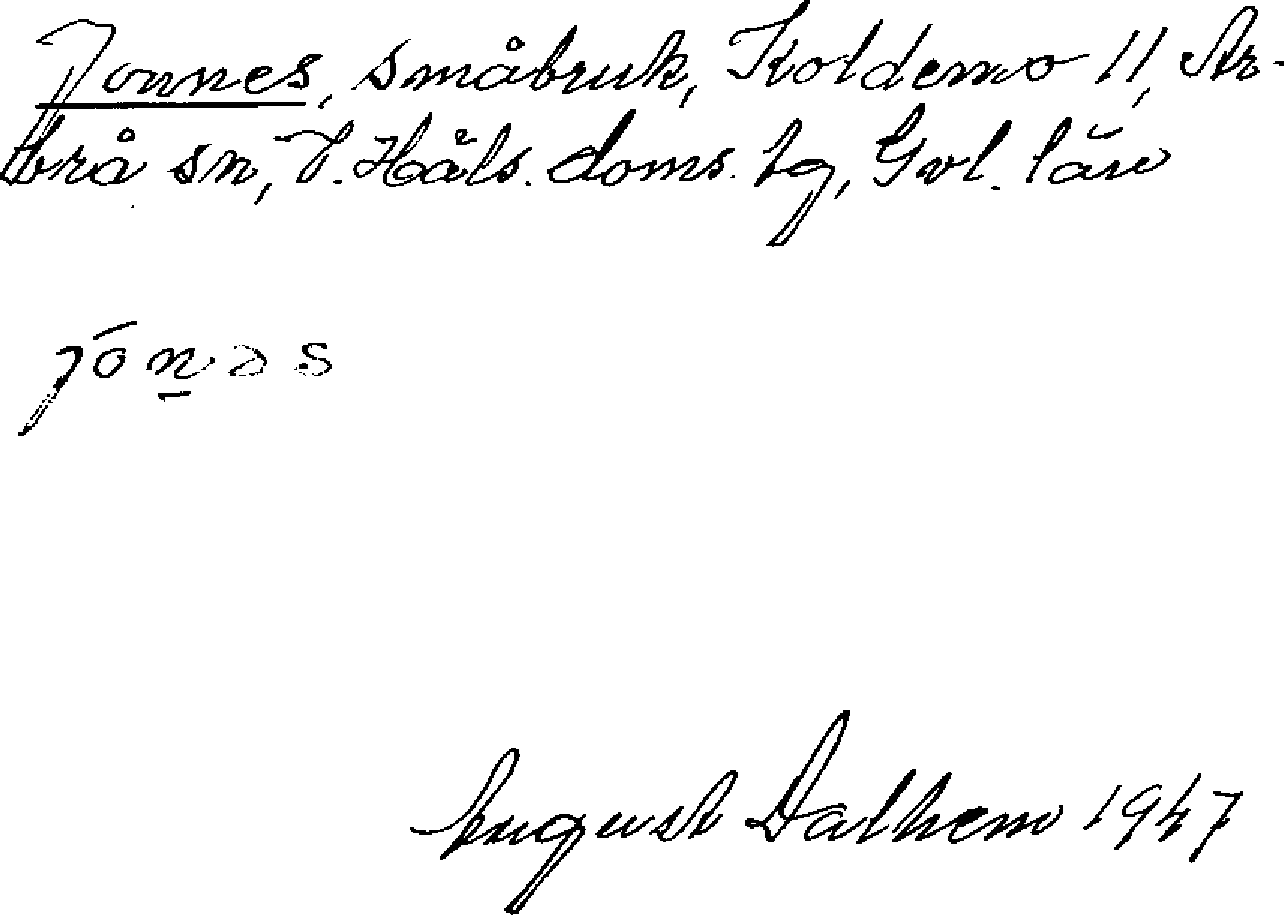 Jonnes, småbruk, Koldemo 11, Ar-
brå sn, V. Häls. doms. lg, Gvl. län
jónas
August Dalhem 1947